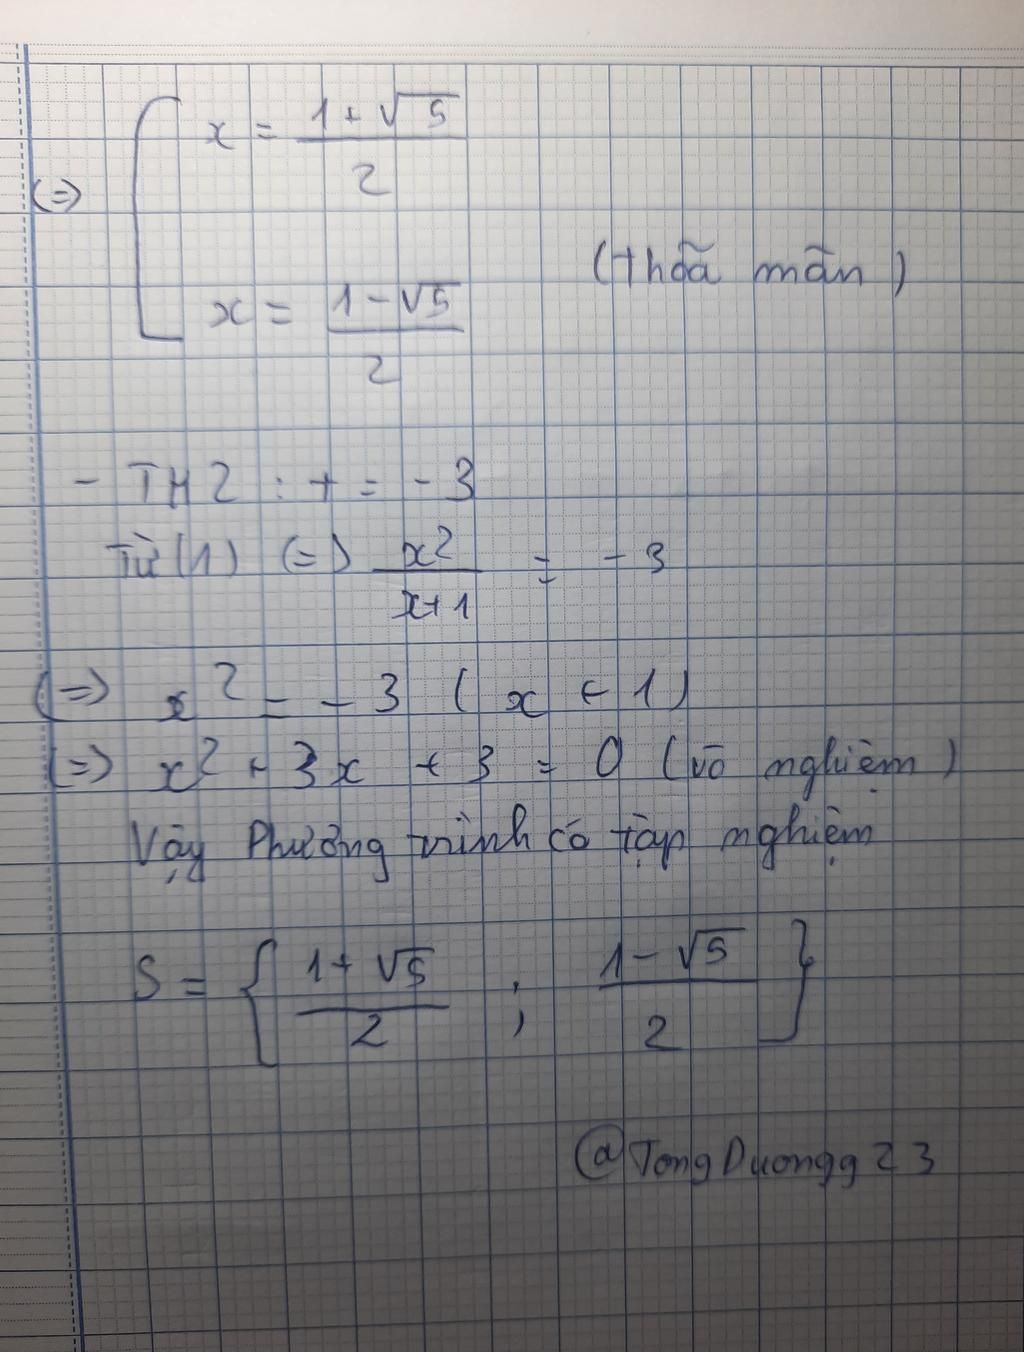 x = \frac{1+\sqrt{5}}{2}
(=>) (thõa mãn)
x = \frac{1-\sqrt{5}}{2}
- TH2 : t = -3
Từ (1) (=) \frac{x^2}{x+1} = -3
(=>) x^2 = -3 (x + 1)
(=>) x^2 + 3x + 3 = 0 (vô nghiệm)
Vậy Phường trình có tập nghiệm
S = \left\{ \frac{1+\sqrt{5}}{2} ; \frac{1-\sqrt{5}}{2} \right\}
@TongDuongg23